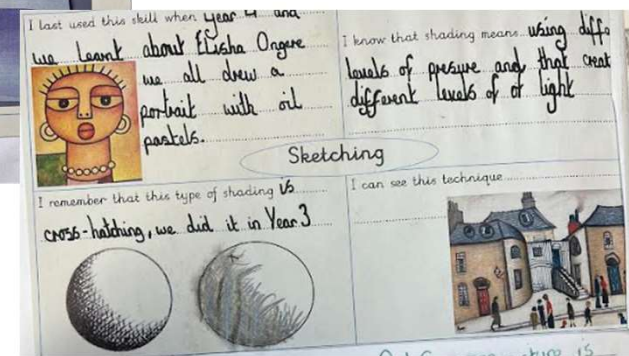 I last used this skill when Year 4 and
we learnt about Elisha Ongere
we all drew a
portrait with oil
pastels.
I know that shading means using diffe
levels of presure and that creat
different levels of of light
Sketching
I remember that this type of shading is
cross-hatching, we did it in Year 3
I can see this technique